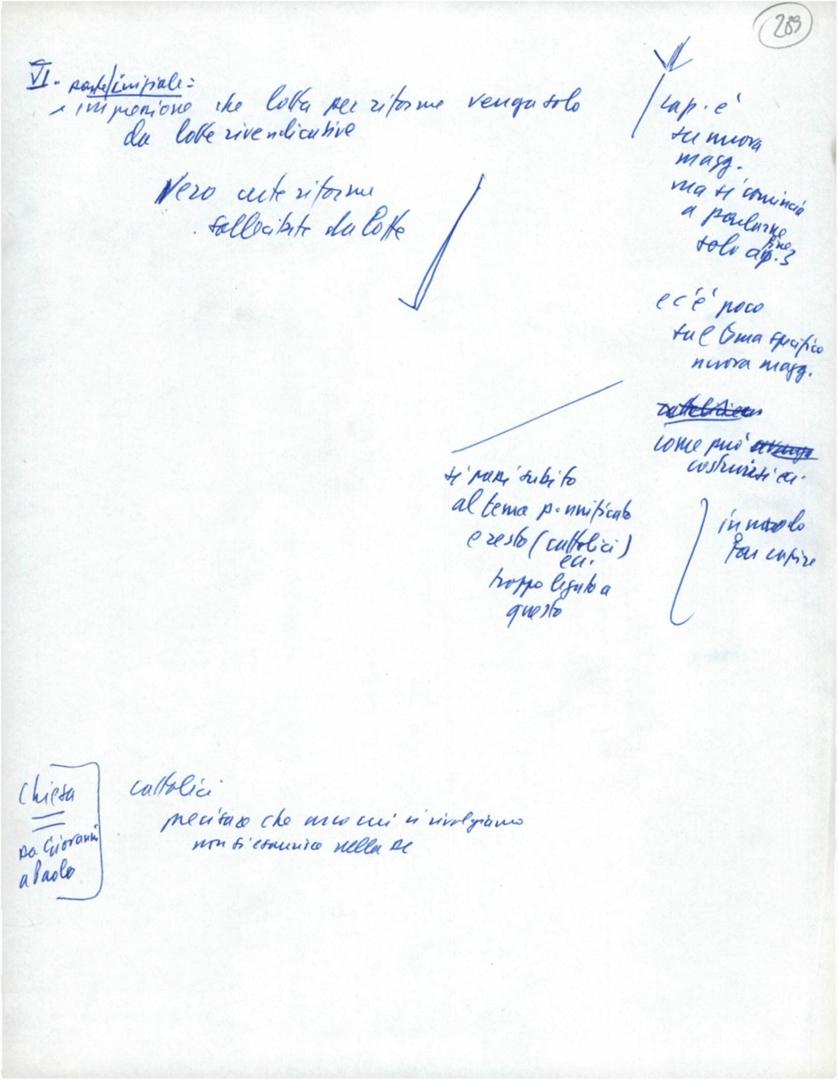 289
VI. parte iniziale:
impressione che lotta per riforme venga solo
da lotte rivendicative
Vero certe riforme
sollecitate da lotte
cap. è
su nuova
magg.
ma si comincia
a parlarne
solo fine
e c'è poco
sul tema specifico
nuova magg.
come può
costruirsi ecc.
in modo
far capire
si passi subito
al tema p. unificato
e resto (cattolici)
ecc.
troppo legato a
questo
Chiesa
da Giovanni
a Paolo
cattolici
precisare che a cui ci rivolgiamo
non si esaurisce nella DC